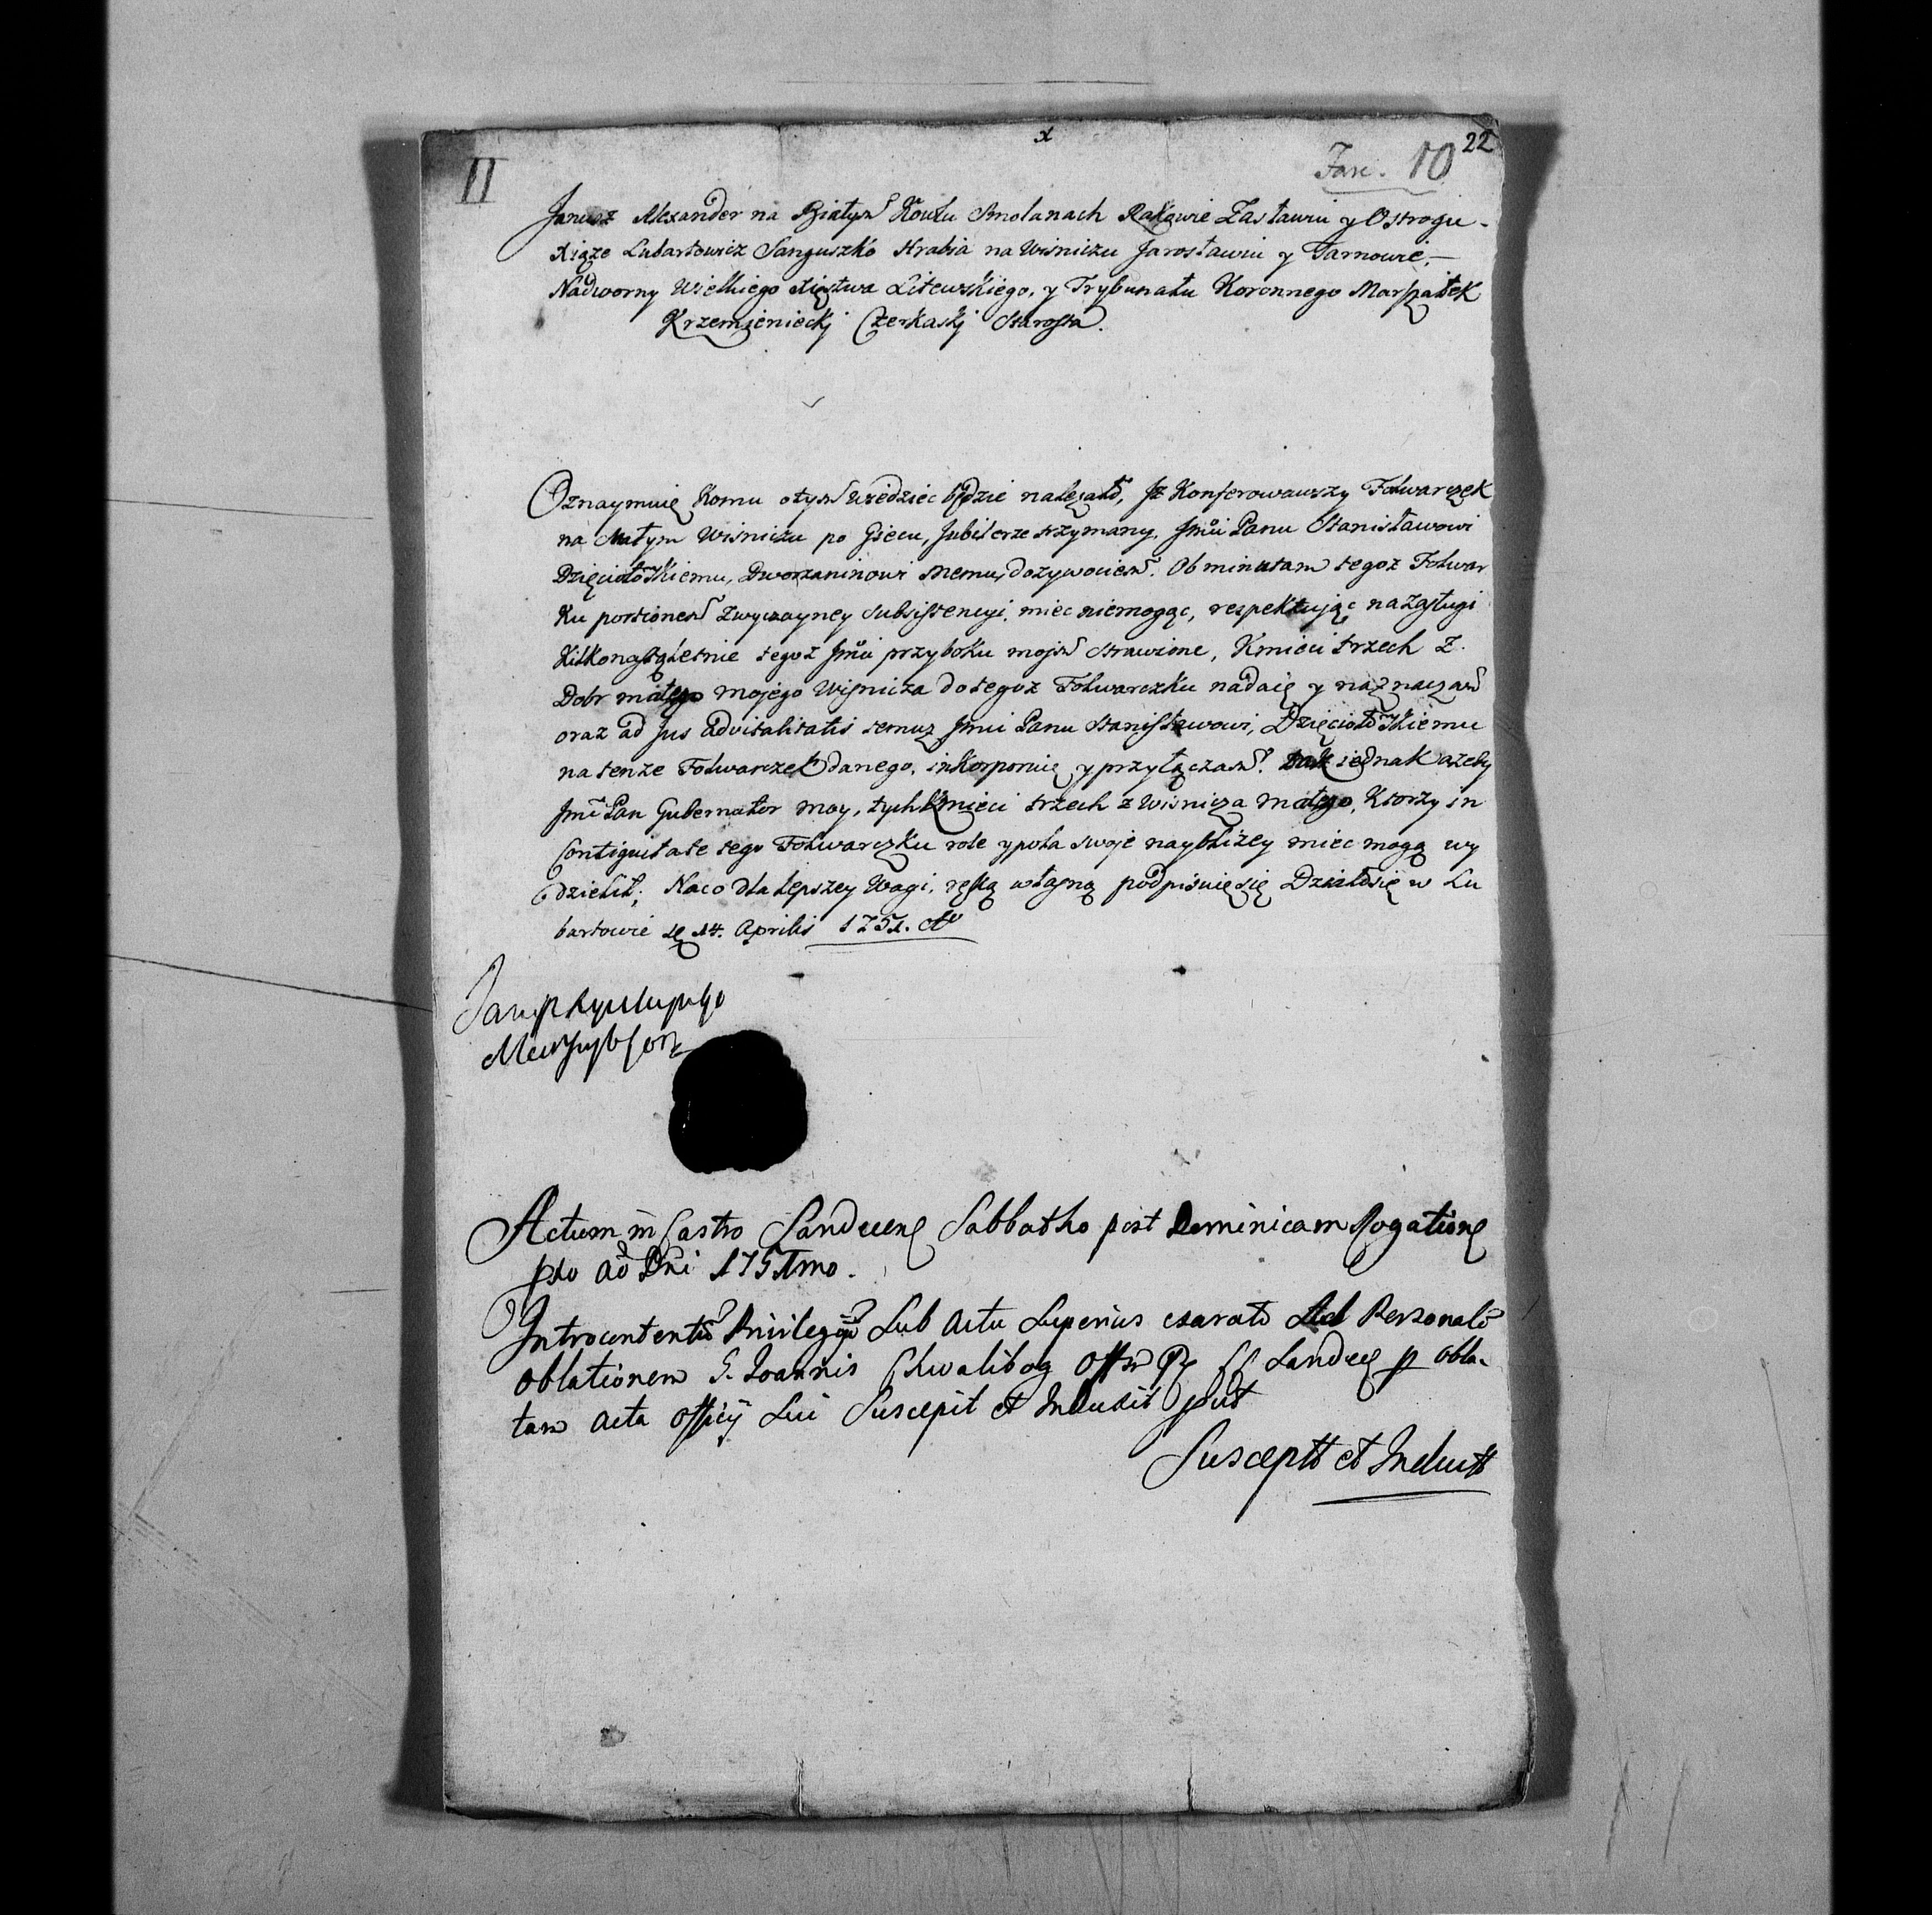 x
II
Fasc. 10
22
Janusz Alexander na Białym Kowlu Smolanach Rakowie Zasławiu y Ostrogu
Xiąże Lubartowicz Sanguszko Hrabia na Wiśniczu Jarosławiu y Tarnowie,
Nadworny Wielkiego Xięstwa Litewskiego, y Trybunału Koronnego Marszałek
Krzemieniecki Czerkaski Starosta.
Oznaymuię komu otym wiedziec będzie należało, Jż Konferowawszy Folwarczek
na Małym Wiśniczu po Giecu, Jubilerze trzymany, Jmći Panu Stanisławowi
Dzięciołoskiemu, Dworzaninowi memu, dożywociem. Ob minutam tegoż Folwar
ku portionem zwyczayney subsistencyi, miec niemogąc, respektuiąc na zasługi
kilkonastoletnie tegoż Jmći przyboku moim strawione, Kmieci trzech z
Dobr małego mojego Wiśnicza do tegoż Folwarczku nadaię y naznaczam
oraz ad jus advitalitatis temuż Jmći Panu Stanisławowi, Dzięciołoskiemu
na tenże Folwarczek danego, inkorporuię y przyłączam. Tak iednak ażeby
Jmć Pan Gubernator moy, tych kmieci trzech z Wiśnicza małego, Ktorzy in
Contiguitate tego Folwarczku role y pola swoje naybliżey miec mogą wy
dzielił; Na co dla lepszey Wagi, ręką własną podpisuię się Działo się w Lu
bartowie 14. Aprilis 1751.
Actum in Castro Sandecen Sabbatho post Dominicam Rogationu
pxo ao Dni 1751mo.
Introcontentu Privilegiu Sub actu Superius exarato Ad Personale
oblationem G. Joannis Chwalibog Offm Sandec p obla-
tam acta officij Sui Suscepit et Induxit
Susceptt et Induxtt